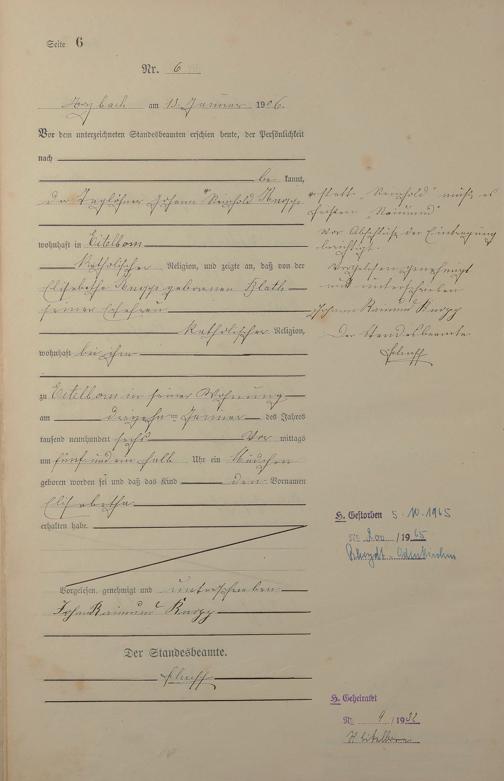 Seite 6
Nr. 6
am 13 Januar 1906.
Vor dem unterzeichneten Standesbeamten erschien heute, der Persönlichkeit
nach
be kannt,
der Taglöhner Johann Reinhold Knopp
wohnhaft in Eitelborn
Katholischer Religion, und zeigte an, daß von der
Elisabetha Knopp geborenen
seiner Ehefrau
Katholischer Religion,
wohnhaft bei ihm
zu Eitelborn in seiner Wohnung
am dreizehn Januar des Jahres
tausend neunhundert sechs Vor mittags
um fünf und ein halb Uhr ein Mädchen
geboren worden sei und daß das Kind den Vornamen
Elisabetha
erhalten habe.
Vorgelesen, genehmigt und unterschrieben
Johann Raimund Knopp
Der Standesbeamte.
anstatt „Reinhold" muß es
heißen „Raimund"
vor Abschluß der Eintragung
berichtigt.
Vorgelesen genehmigt
und unterschrieben
Johann Raimund Knopp
Der Standesbeamte
H. Gestorben 5.10.1965
Nr. 200 /1965
H. Geheiratet
Nr. 9 /1932
Eitelborn